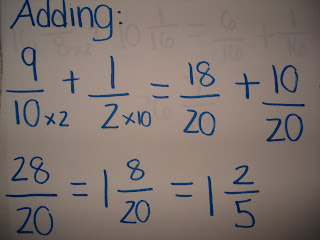 Adding:
9/10 x2 + 1/2 x10 = 18/20 + 10/20
28/20 = 1 8/20 = 1 2/5